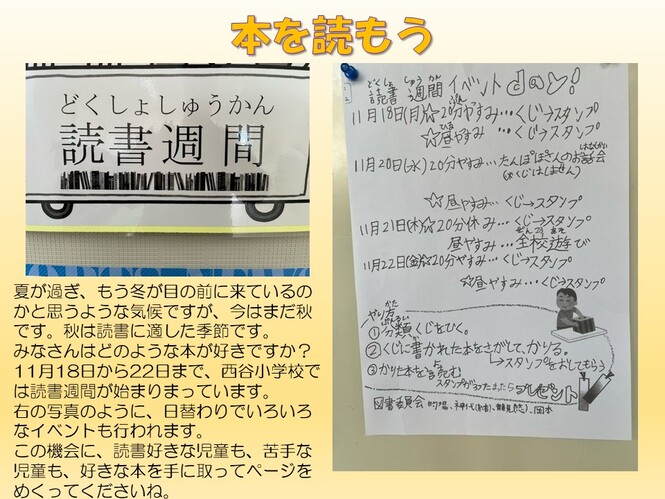 本を読もう
どくしょしゅうかん
読書週間
夏が過ぎ、もう冬が目の前に来ているの
かと思うような気候ですが、今はまだ秋
です。秋は読書に適した季節です。
みなさんはどのような本が好きですか？
11月18日から22日まで、西谷小学校で
は読書週間が始まりまっています。
右の写真のように、日替わりでいろいろ
なイベントも行われます。
この機会に、読書好きな児童も、苦手な
児童も、好きな本を手に取ってページを
めくってくださいね。
どくしょ しゅう かん
読書 週間 イベント day!
11月18日(月)☆20分やすみ…くじ→スタンプ
☆昼やすみ …くじ→スタンプ
11月20日(水)20分やすみ…たんぽぽさんのお話会
(※くじはしません)
☆昼やすみ…くじ→スタンプ
11月21日(木)☆20分休み…くじ→スタンプ
昼やすみ…全校遊び
11月22日(金)☆20分やすみ…くじ→スタンプ
☆昼やすみ…くじ→スタンプ
やり方
①分類くじをひく。
②くじに書かれた本をさがして、かりる。
→スタンプをおしてもらう
③かりた本を読む
スタンプがたまったら プレゼント
図書委員会